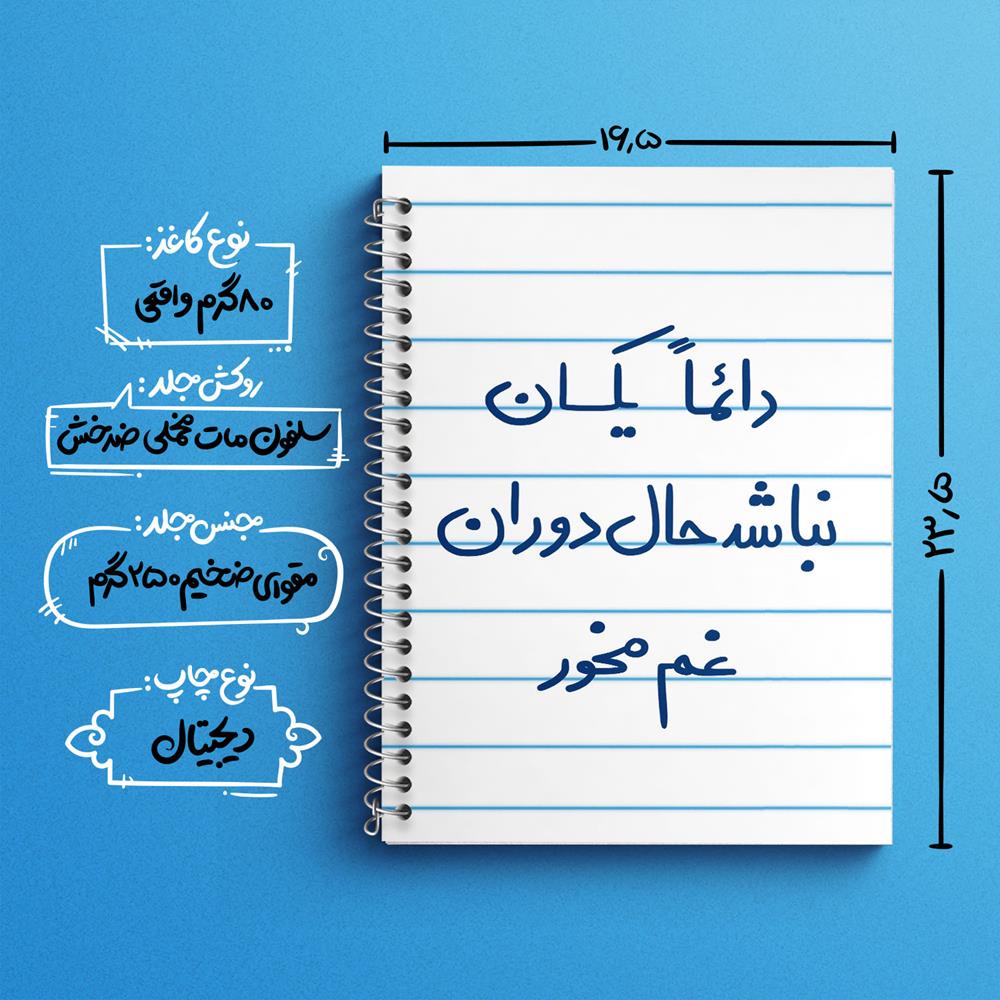 ۱۶٫۵
۲۳٫۵
نوع کاغذ:
۸۰گرم واقعی
روکش جلد:
سلفون مات مخملی ضدخش
جنس جلد:
مقوای ضخیم ۲۵۰گرم
نوع چاپ:
دیجیتال
دائماً یکسان
نباشد حال دوران
غم مخور